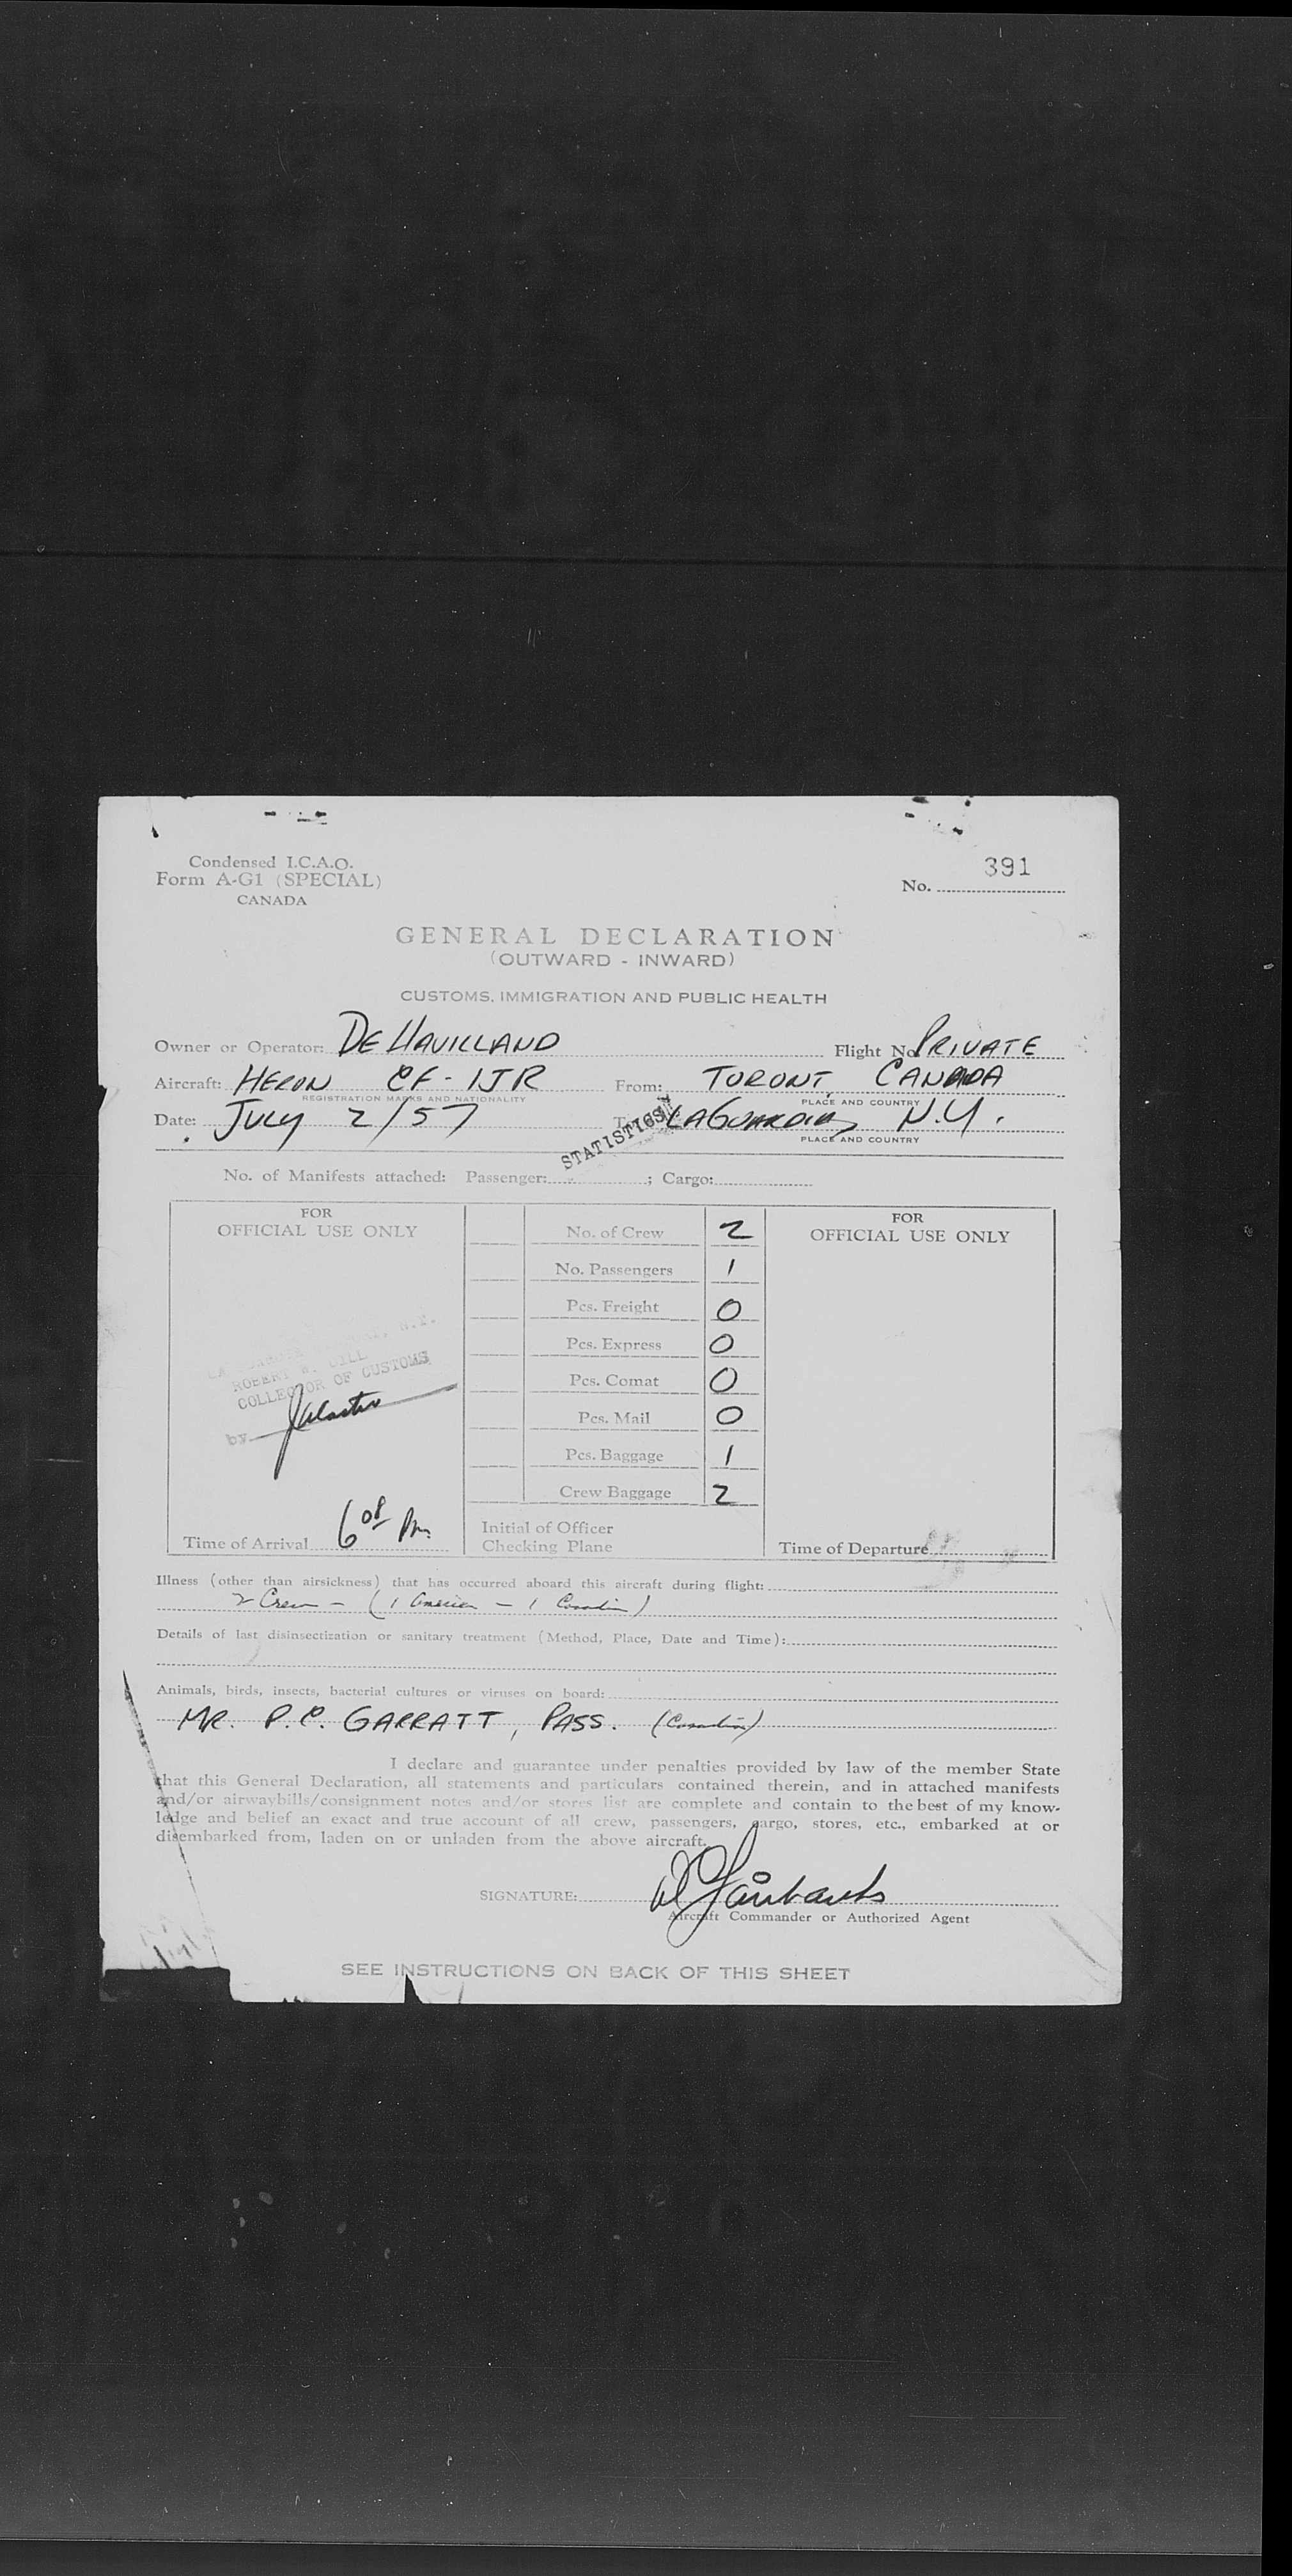 Condensed I.C.A.O.
Form A-G1 (SPECIAL)
CANADA
391
No.
GENERAL DECLARATION
(OUTWARD - INWARD)
CUSTOMS, IMMIGRATION AND PUBLIC HEALTH
Owner or Operator: DE HAVILLAND Flight No. PRIVATE
Aircraft: HERON CF-IJR From: TORONT, CANADA
REGISTRATION MARKS AND NATIONALITY PLACE AND COUNTRY
Date: JULY 2/57 LAGUARDIA N.Y.
PLACE AND COUNTRY
STATISTICS
No. of Manifests attached: Passenger: ; Cargo:
FOR
OFFICIAL USE ONLY
No. of Crew 2
No. Passengers 1
Pcs. Freight 0
Pcs. Express 0
Pcs. Comat 0
Pcs. Mail 0
Pcs. Baggage 1
Crew Baggage 2
FOR
OFFICIAL USE ONLY
ROBERT W. DILL
COLLECTOR OF CUSTOMS
by
Time of Arrival 6 08 Pm.
Initial of Officer
Checking Plane
Time of Departure
Illness (other than airsickness) that has occurred aboard this aircraft during flight:
2 Crew - (1 American - 1 Canadian)
Details of last disinsectization or sanitary treatment (Method, Place, Date and Time):
Animals, birds, insects, bacterial cultures or viruses on board:
MR. P.C. GARRATT, PASS. (Canadian)
I declare and guarantee under penalties provided by law of the member State
that this General Declaration, all statements and particulars contained therein, and in attached manifests
and/or airwaybills/consignment notes and/or stores list are complete and contain to the best of my know-
ledge and belief an exact and true account of all crew, passengers, cargo, stores, etc., embarked at or
disembarked from, laden on or unladen from the above aircraft.
SIGNATURE: Fairbanks
Aircraft Commander or Authorized Agent
SEE INSTRUCTIONS ON BACK OF THIS SHEET